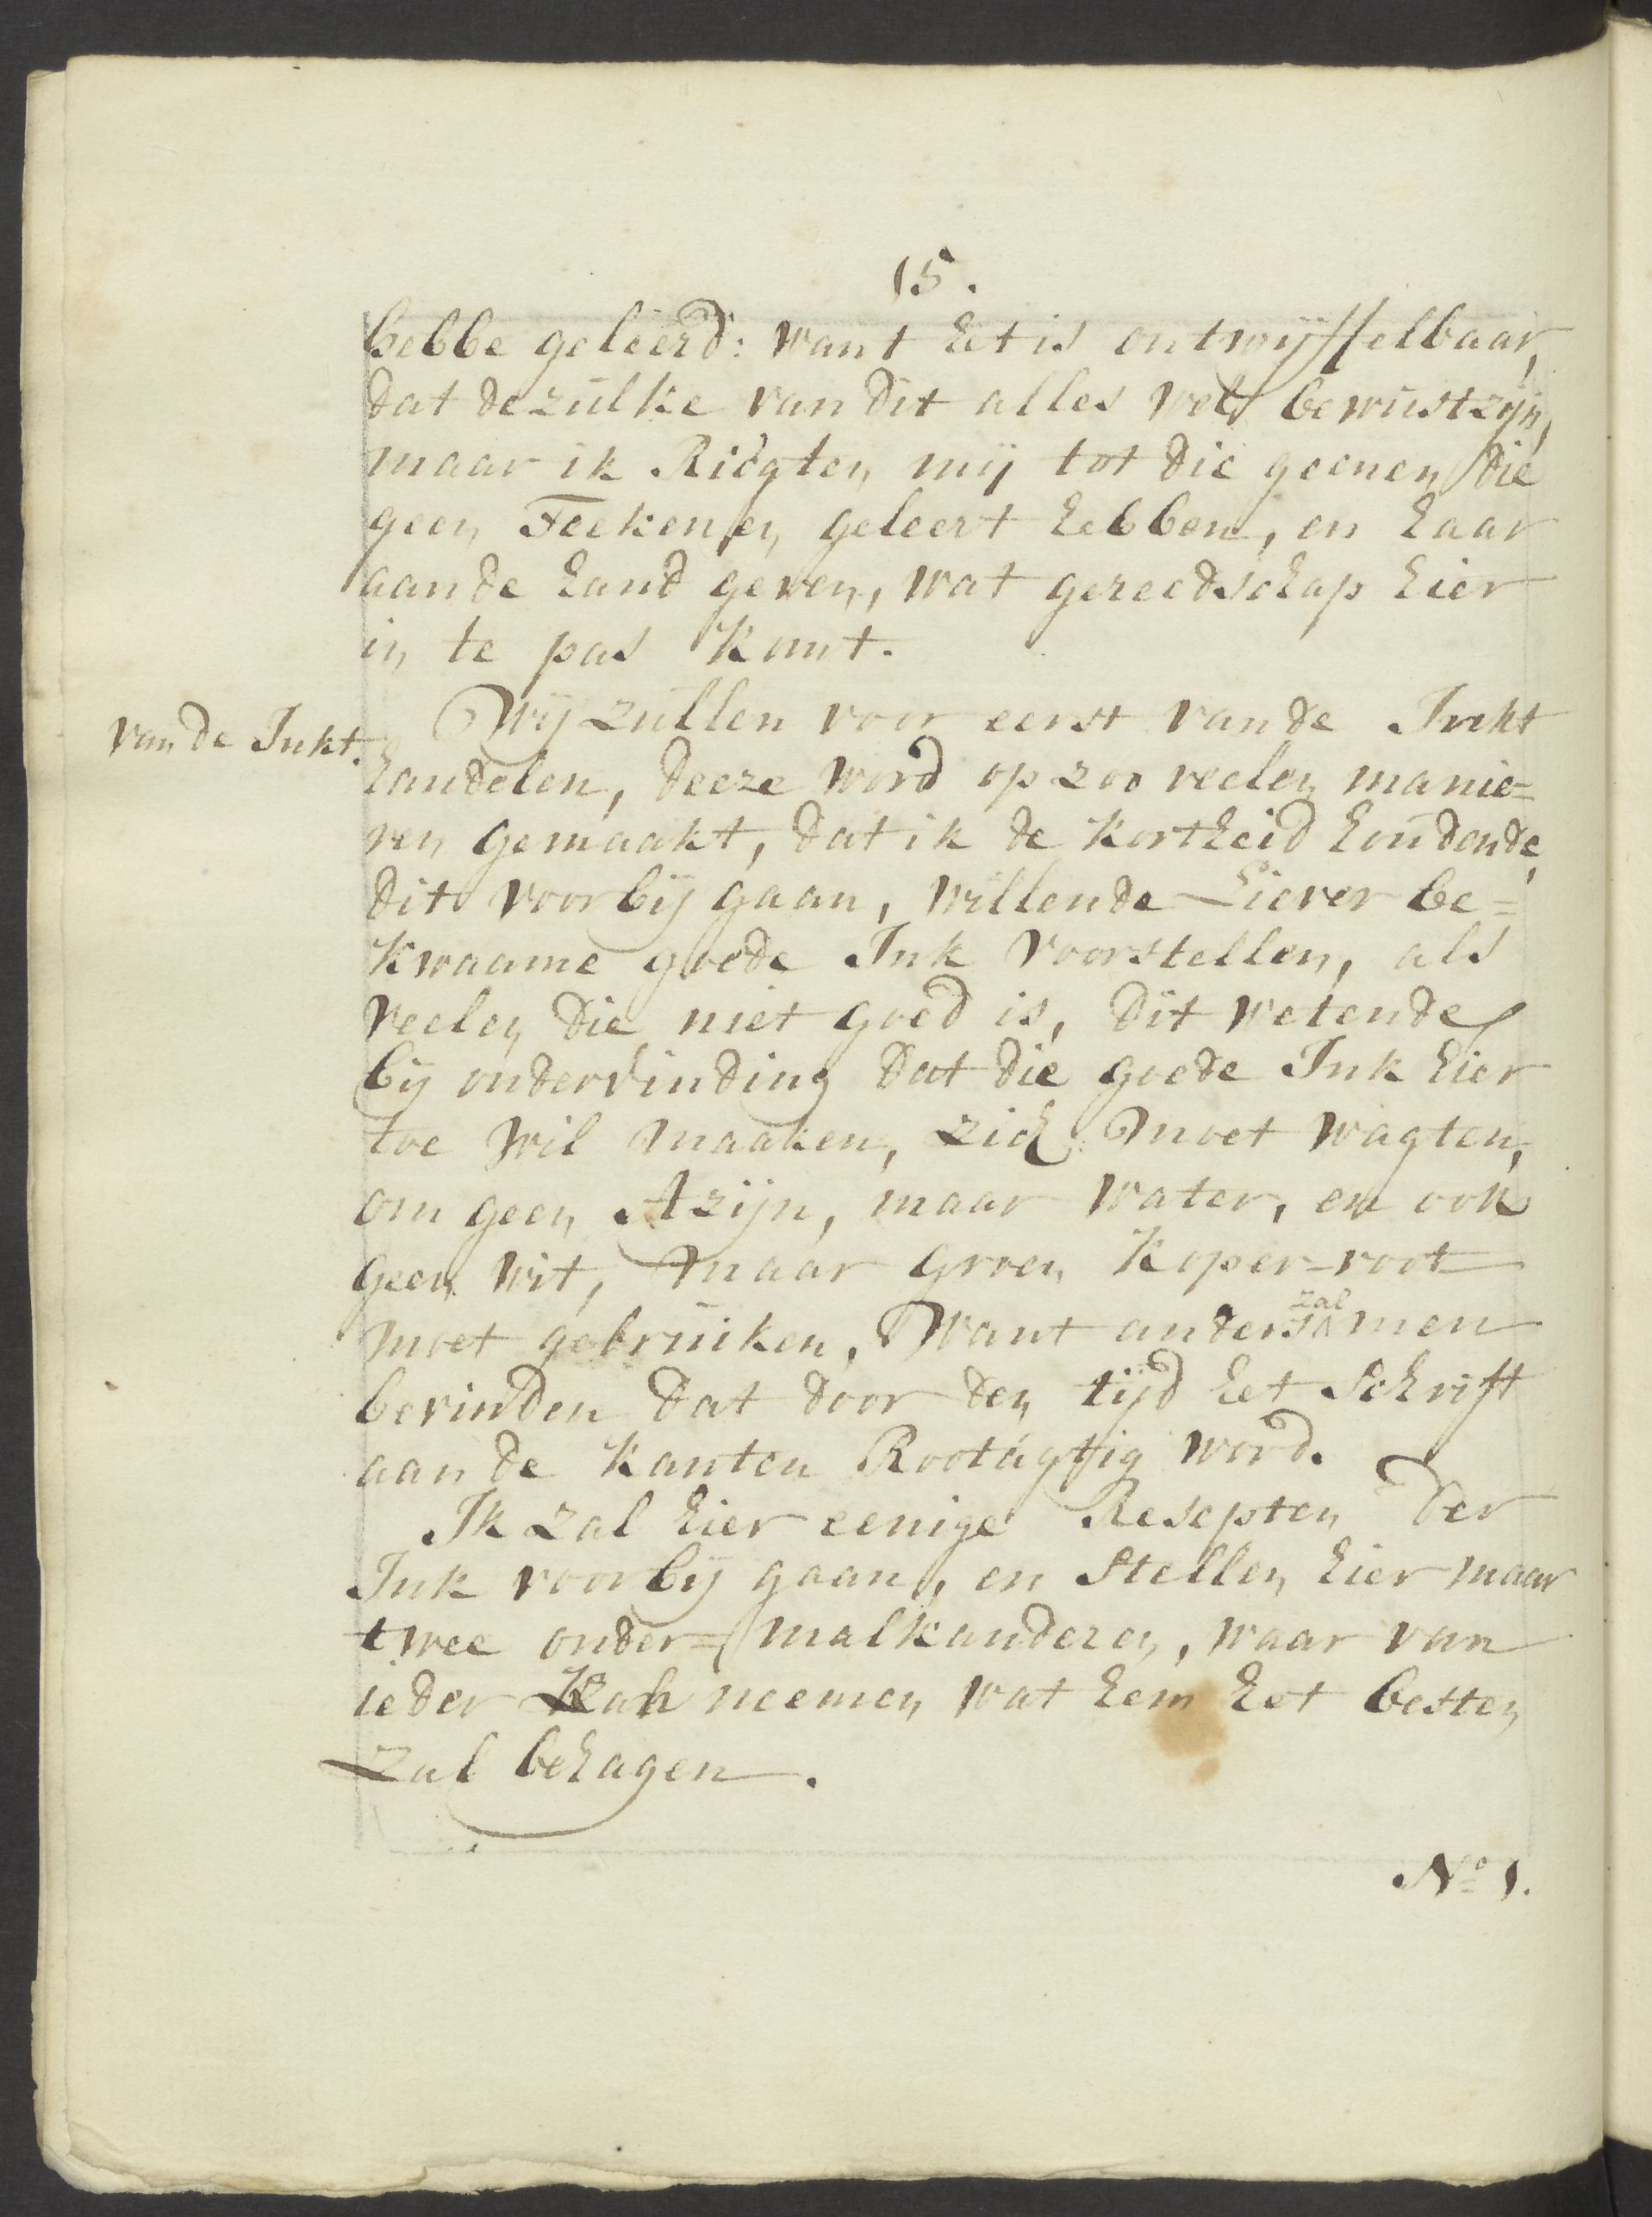 15.
hebbe geleerd: want het is ontwyffelbaar,
dat dezulke van dit alles wel bewust zijn,
maar ik Rigten mij tot die geenen die
geen Teekenen geleert hebben, en haar
aan de hand geven, wat gereedschap hier
in te pas komt.
van de Inkt.
Wij zullen voor eerst van de Inkt
handelen, deeze word op zoo veelen manie=
ren gemaakt, dat ik de kortheid houdende,
dit voorbij gaan, willende Liever be=
kwaame goede Ink voorstellen, als
veelen die niet goed is, dit wetende
bij ondervinding dat die goede Ink hier
toe wil maaken, zich moet wagten,
om geen Azijn, maar water, en ook
geen wit, maar groen koper-root
moet gebruiken, Want anders zal men
bevinden dat door den tijd het Schrift
aan de kanten Rootagtig word.
Ik zal hier eenige Resepten der
Ink voorbij gaan, en Stellen hier maar
twee onder= malkanderen, waar van
ieder kan neemen wat hem het besten
zal behagen.
No 1.